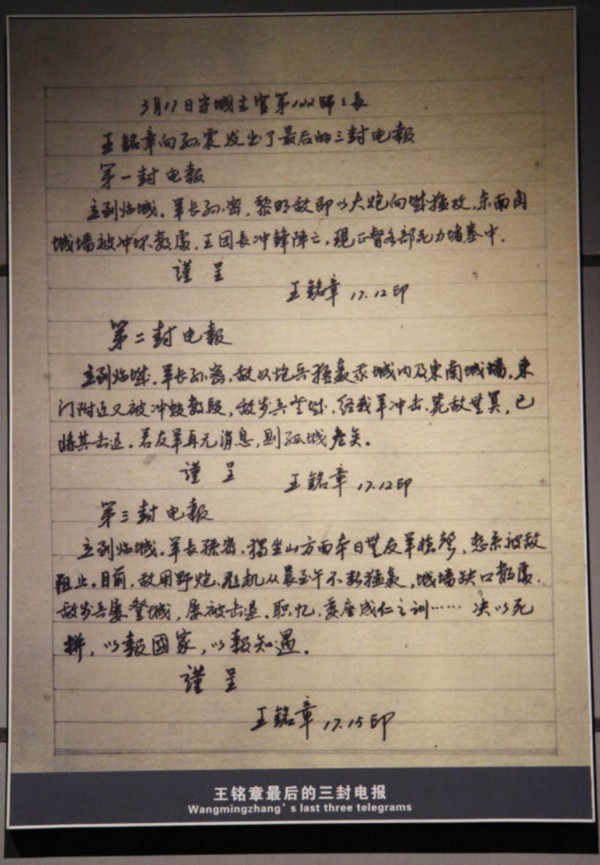 3月17日守城主官第122师师長
王铭章向孙震发出了最后的三封电报
第一封电报
立到临城。军长孙密，黎明敌即以大炮向城猛攻，东南角
城墙被冲坏数處，王团長冲鋒陣亡，现正督各部死力堵塞中.
謹 呈
王銘章 17.12印
第二封电報
立到临城。军长孙密，敌以炮兵猛轰我城内及東南城墙，東
门附近又被冲毁数段，敌步兵登城，经我军冲击，毙敌無算，已
将其击退。若友军再无消息，则孤城危矣。
謹 呈
王銘章 17.12印
第三封电報
立到临城。军长孫密，独坐山方面本日無友军槍聲，想系被敌
阻止。目前，敌用野炮、飛机从晨至午不断猛轰，城墙缺口数處，
敌步兵屡登城，屡被击退。职忆，委座成仁之训…… 决以死
拼，以報國家，以報知遇。
謹 呈
王銘章 17.15印
王铭章最后的三封电报
Wangmingzhang's last three telegrams